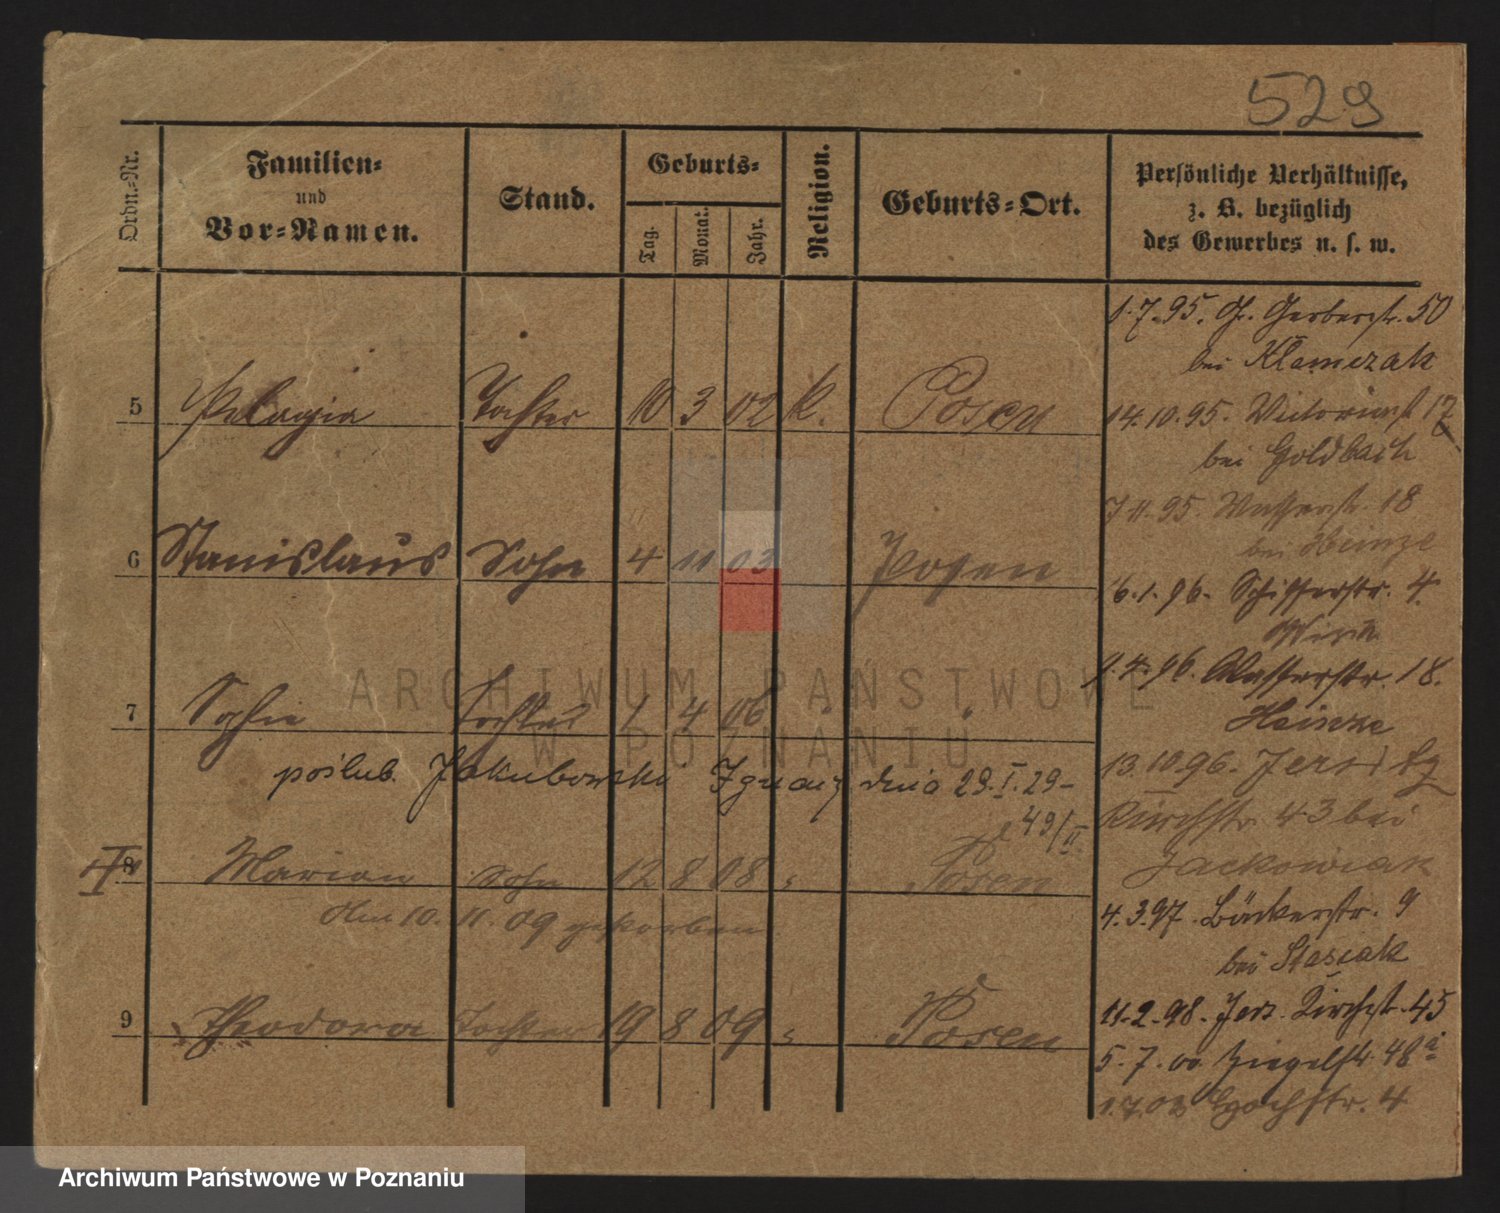 529
Ordn.-Nr.
Familien-
und
Vor-Namen.
Stand.
Geburts-
Tag.
Monat.
Jahr.
Religion.
Geburts-Ort.
Persönliche Verhältnisse,
z. B. bezüglich
des Gewerbes u. s. w.
5 Pelagia Tochter 10 3 02 k. Posen
6 Stanislaus Sohn 4 11 03 Posen
7 Sophie Tochter 1 4 06 "
poślub. Jakubowski Ignacy dnia 29.I.29-
49/II
8 Marian Sohn 12 8 08 " Posen
Am 10. 11. 09 gestorben
9 Theodora Tochter 19 8 09 " Posen
1.7.95. Gr. Gerberstr. 50
bei Klamczak
14.10.95. Victoriast 17
bei Goldbach
7.11.95. Wasserstr. 18
bei Heinze
6.1.96. Schifferstr. 4.
1.4.96. Wasserstr. 18.
Heinze
13.10.96. Jersitz
Kirchstr. 43 bei
Jackowiak
4.3.97. Bäckerstr. 9
bei Stasiak
11.2.98. Jers. Kirchstr. 45
5.7.00. Ziegelstr. 48
ARCHIWUM PAŃSTWOWE
W POZNANIU
Archiwum Państwowe w Poznaniu